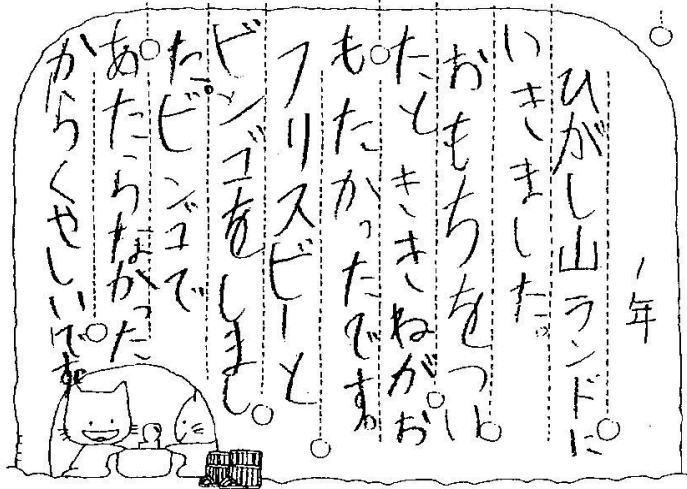 1年
ひがし山ランドに
いきました。
おもちをつい
たときねがお
もたかったです。
フリスビーと
ビンゴをしまし
た。ビンゴで
あたらなかった
からくやしいです。